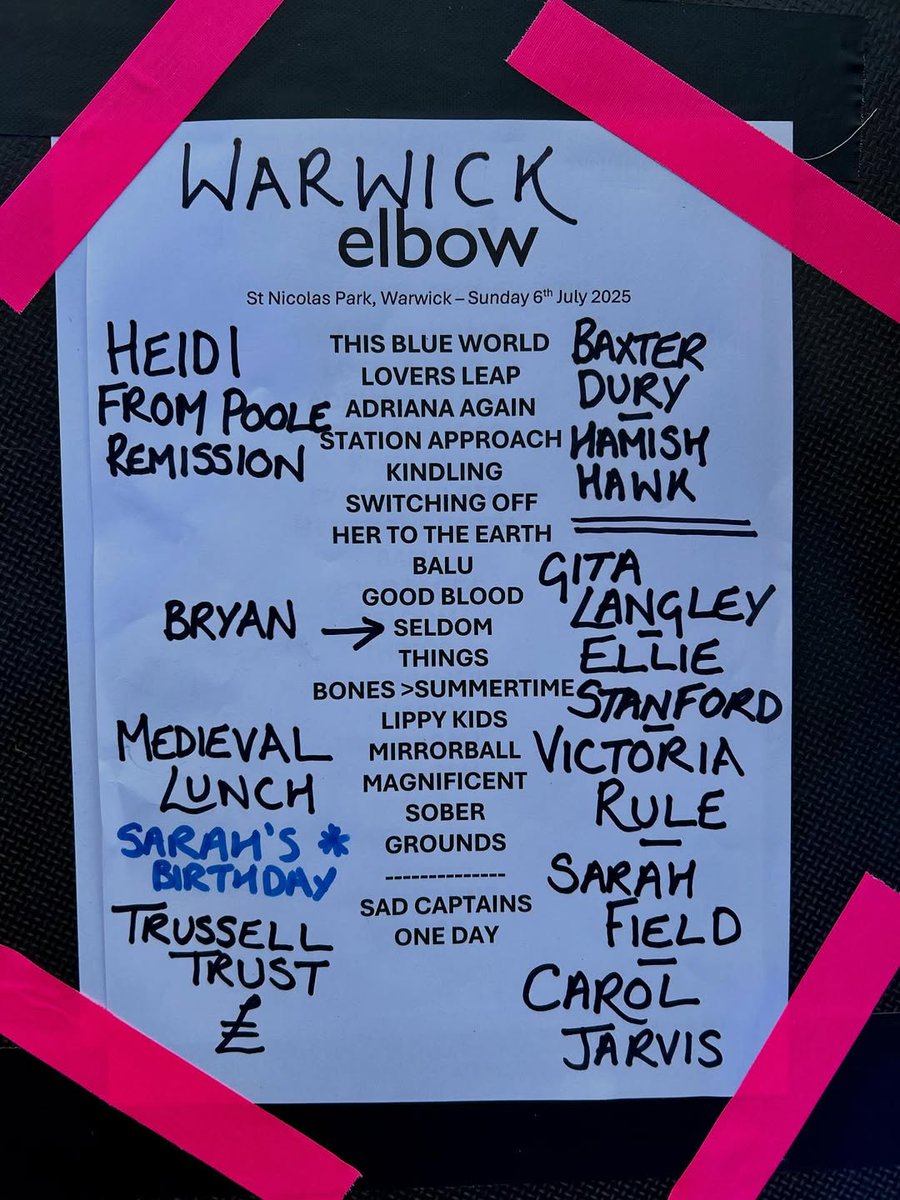 WARWICK
elbow
St Nicolas Park, Warwick – Sunday 6th July 2025
HEIDI
FROM POOLE
REMISSION
BRYAN →
MEDIEVAL
LUNCH
SARAH'S *
BIRTHDAY
TRUSSELL
TRUST
£
THIS BLUE WORLD
LOVERS LEAP
ADRIANA AGAIN
STATION APPROACH
KINDLING
SWITCHING OFF
HER TO THE EARTH
BALU
GOOD BLOOD
SELDOM
THINGS
BONES >SUMMERTIME
LIPPY KIDS
MIRRORBALL
MAGNIFICENT
SOBER
GROUNDS
--------------
SAD CAPTAINS
ONE DAY
BAXTER
DURY
—
HAMISH
HAWK
GITA
LANGLEY
—
ELLIE
STANFORD
—
VICTORIA
RULE
—
SARAH
FIELD
—
CAROL
JARVIS